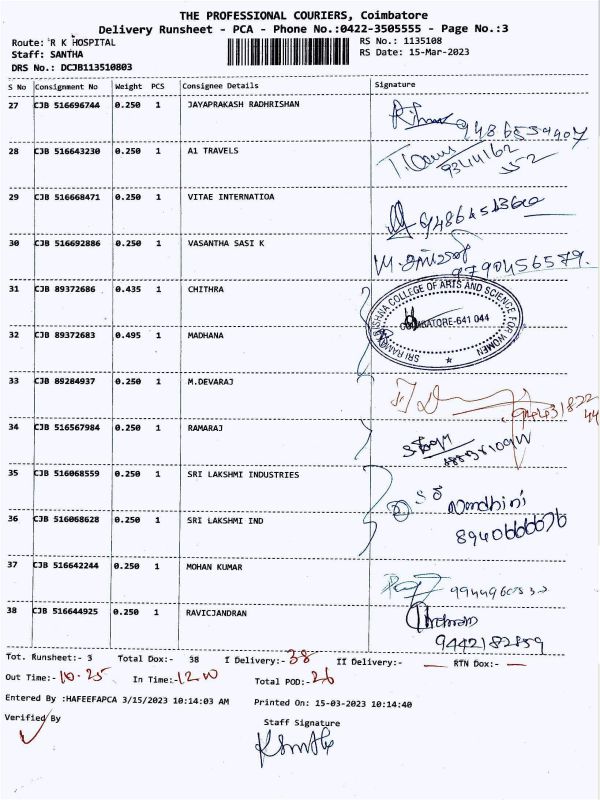 THE PROFESSIONAL COURIERS, Coimbatore
Delivery Runsheet - PCA - Phone No.:0422-3505555 - Page No.:3
Route: R K HOSPITAL
RS No.: 1135108
Staff: SANTHA
RS Date: 15-Mar-2023
DRS No.: DCJB113510803
S No Consignment No Weight PCS Consignee Details Signature
27 CJB 516696744 0.250 1 JAYAPRAKASH RADHRISHAN
9486559407
28 CJB 516643230 0.250 1 A1 TRAVELS
29 CJB 516668471 0.250 1 VITAE INTERNATIOA
30 CJB 516692886 0.250 1 VASANTHA SASI K
9790456579.
31 CJB 89372686 0.435 1 CHITHRA
SRI RAMAKRISHNA COLLEGE OF ARTS AND SCIENCE FOR WOMEN
COIMBATORE-641 044
32 CJB 89372683 0.495 1 MADHANA
33 CJB 89284937 0.250 1 M.DEVARAJ
34 CJB 516567984 0.250 1 RAMARAJ
35 CJB 516068559 0.250 1 SRI LAKSHMI INDUSTRIES
Nandhini
36 CJB 516068628 0.250 1 SRI LAKSHMI IND
37 CJB 516642244 0.250 1 MOHAN KUMAR
38 CJB 516644925 0.250 1 RAVICJANDRAN
9442182859
Tot. Runsheet:- 3 Total Dox:- 38 I Delivery:- 38 II Delivery:- — RTN Dox:- —
Out Time:- 10.25 In Time:- Total POD:- 26
Entered By :HAFEEFAPCA 3/15/2023 10:14:03 AM Printed On: 15-03-2023 10:14:40
Verified By Staff Signature